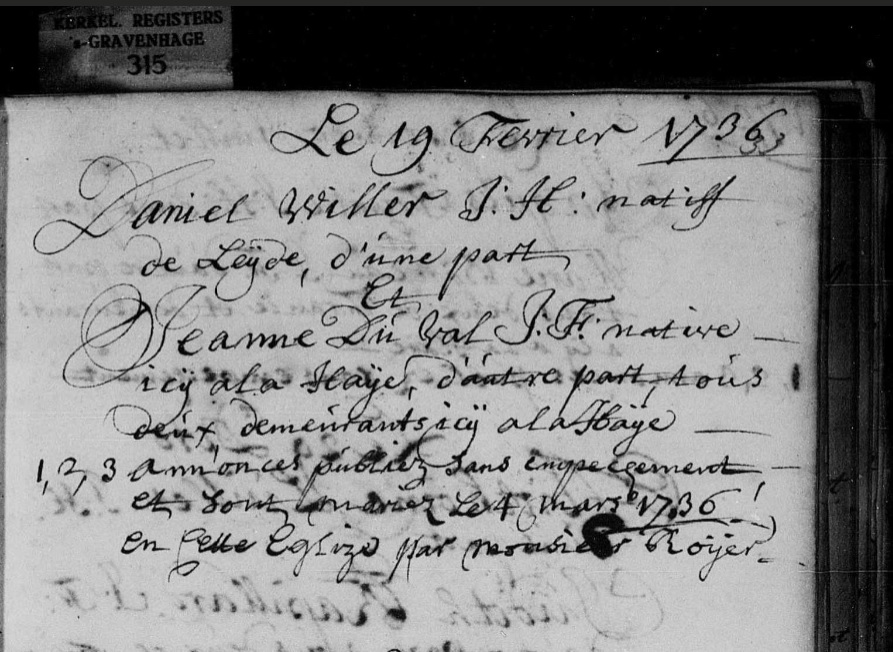 KERKEL. REGISTERS
's-GRAVENHAGE
315
Le 19 Fevrier 1736
33
Daniel Willer J: H: natiff
de Leÿde, d'une part
Et
Jeanne Du Val J: F: native
icÿ a la Haÿe, d'autre part, tous
deux demeurants icÿ a la Haÿe
1, 2, 3 annonces publiez sans empecement
et sont mariez Le 4 mars 1736
en cette Eglize par monsieur Roÿer